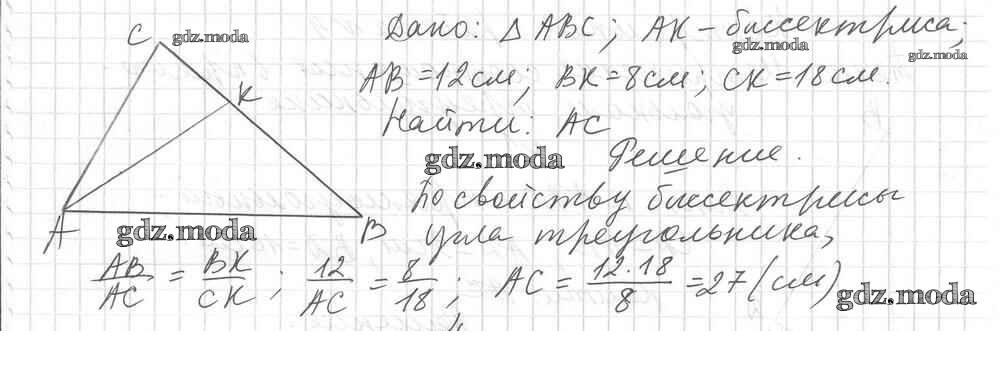 C gdz.moda Дано: △ ABC; AK – биссектриса;
gdz.moda
gdz.moda
K AB = 12 см; BK = 8 см; CK = 18 см.
Найти: AC
gdz.moda Решение.
По свойству биссектрисы
A gdz.moda B угла треугольника,
AB/AC = BK/CK ; 12/AC = 8/18 ; AC = 12·18/8 = 27 (см)
gdz.moda